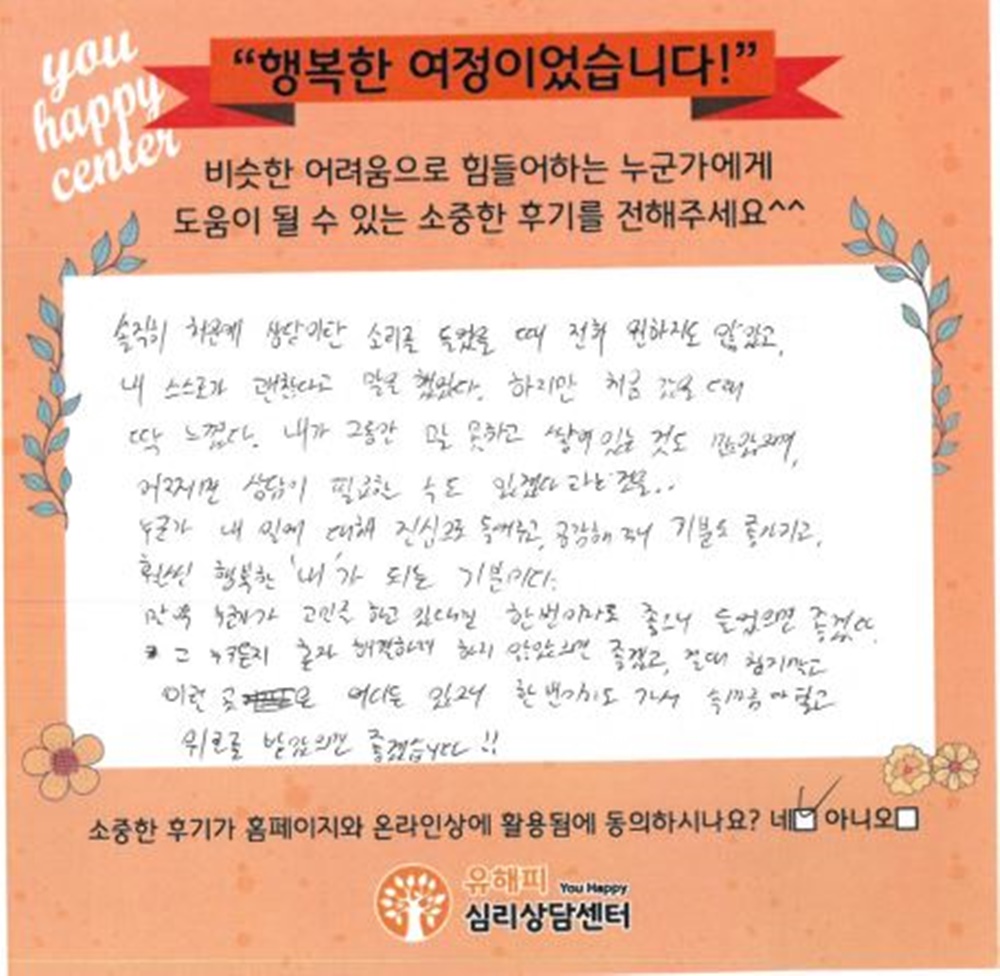 you
happy
center
“행복한 여정이었습니다!”
비슷한 어려움으로 힘들어하는 누군가에게
도움이 될 수 있는 소중한 후기를 전해주세요^^
솔직히 처음에 상담이란 소리를 들었을 때 전혀 원하지도 않았고,
내 스스로가 괜찮다고 말을 했었다. 하지만 처음 갔을 때
딱 느꼈다. 내가 그동안 말 못하고 쌓여 있는 것도 많았으며,
어쩌면 상담이 필요한 수도 있겠다 라는 것을..
누군가 내 일에 대해 진심으로 들어주고, 공감해 주니 기분도 좋아지고,
훨씬 행복한 '내'가 되는 기분이다.
만약 누군가가 고민을 하고 있다면 한번이라도 좋으니 들었으면 좋겠다.
그 누구든지 혼자 해결하려 하지 않았으면 좋겠고, 절대 참지말고
이런 곳 은 어디든 있으니 한번이라도 가서 속마음 다 털고
위로를 받았으면 좋겠습니다!!
소중한 후기가 홈페이지와 온라인상에 활용됨에 동의하시나요? 네 아니오
유해피 You Happy
심리상담센터